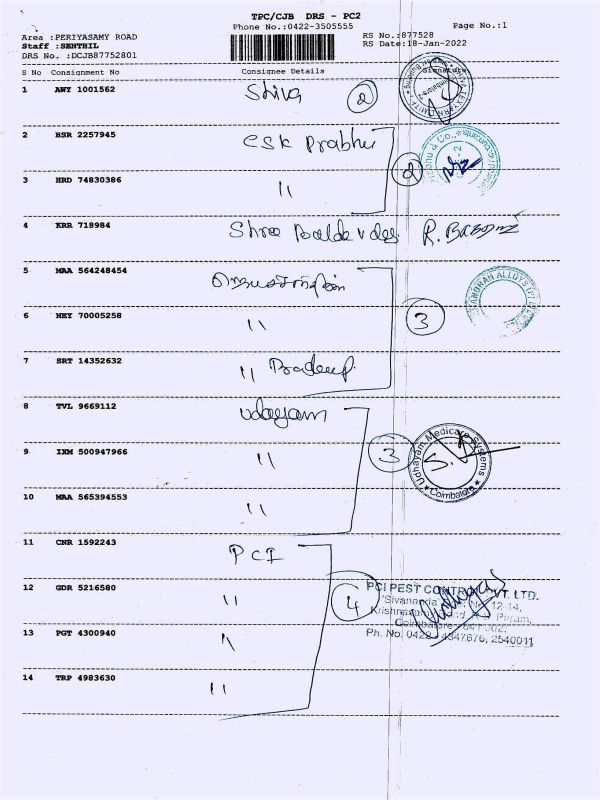 TPC/CJB DRS - PC2
Phone No.:0422-3505555
Page No.:1
Area :PERIYASAMY ROAD
Staff :SENTHIL
DRS No. :DCJB87752801
RS No.:877528
RS Date:18-Jan-2022
S No Consignment No Consignee Details Signature
1 AWY 1001562 Shiva 2
2 HSR 2257945 CSK Prabhu
3 HRD 74830386 11 2
4 KRR 718984 Shree R.
5 MAA 564248454
6 NEY 70005258 11 3
7 SRT 14352632 11 Pradeep
8 TVL 9669112 udayam
9 IXM 500947966 11 3
Udhayam Medicare Systems
Coimbatore
10 MAA 565394553 11
11 CNR 1592243 PCI
12 GDR 5216580 11 4
PCI PEST CONTROL PVT. LTD.
13 PGT 4300940 11
Ph. No. 0422 4347676, 2540011
14 TRP 4983630 11